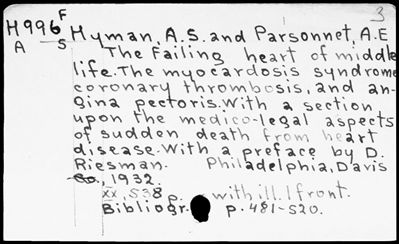 3
H996 F Hyman, A.S. and Parsonnet, A.E
A S The Failing heart of middle
life. The myocardosis syndrome
coronary thrombosis, and an-
gina pectoris. With a section
upon the medico-legal aspects
of sudden death from heart
disease. With a preface by D.
Riesman. Philadelphia, Davis
Co., 1932.
xx, 538 p. with ill. 1 front.
Bibliogr. p. 481-520.